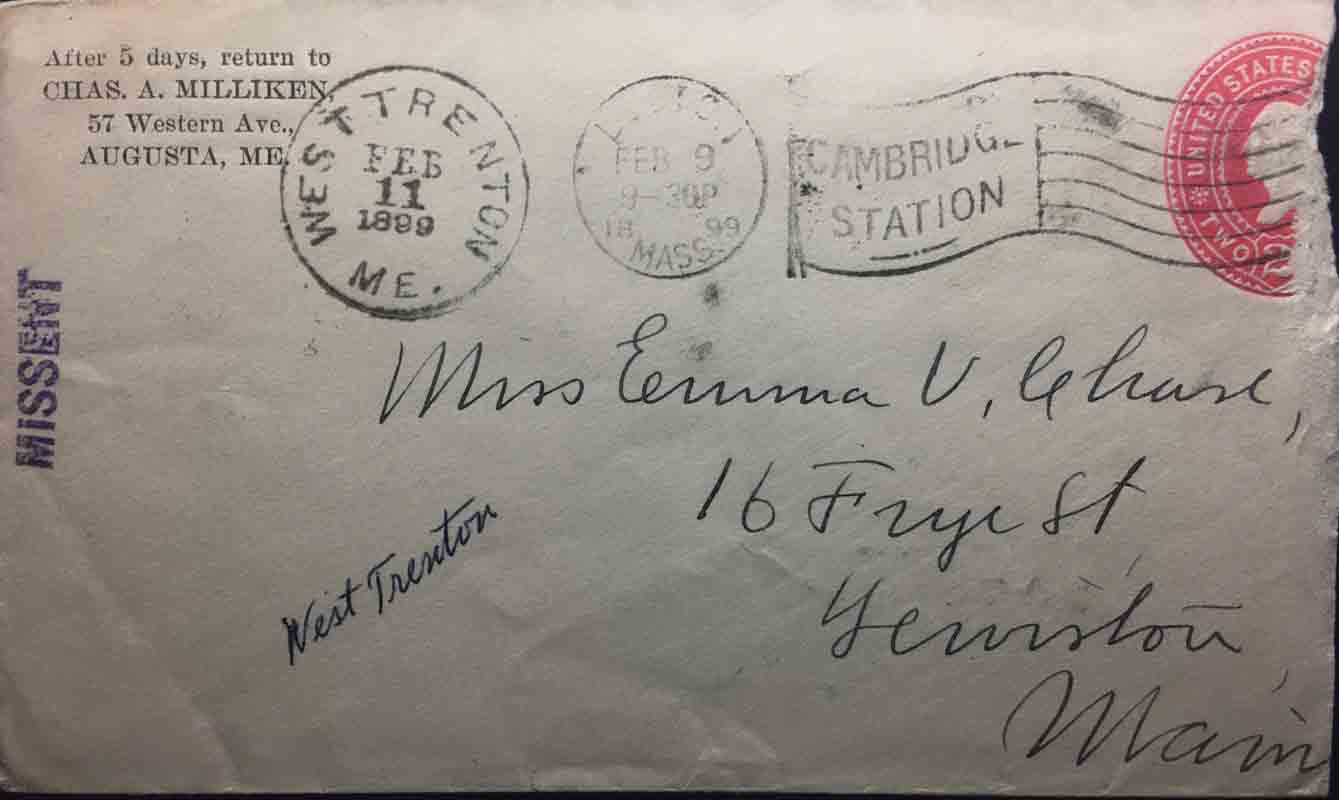 After 5 days, return to
CHAS. A. MILLIKEN,
57 Western Ave.,
AUGUSTA, ME.
WEST TRENTON
FEB
11
1899
ME.
FEB 9
9-30P
18 99
MASS.
STATION
UNITED STATES
TWO
MISSENT
Miss Emma V. Chase,
16 Frye St
Lewiston
Main
West Trenton